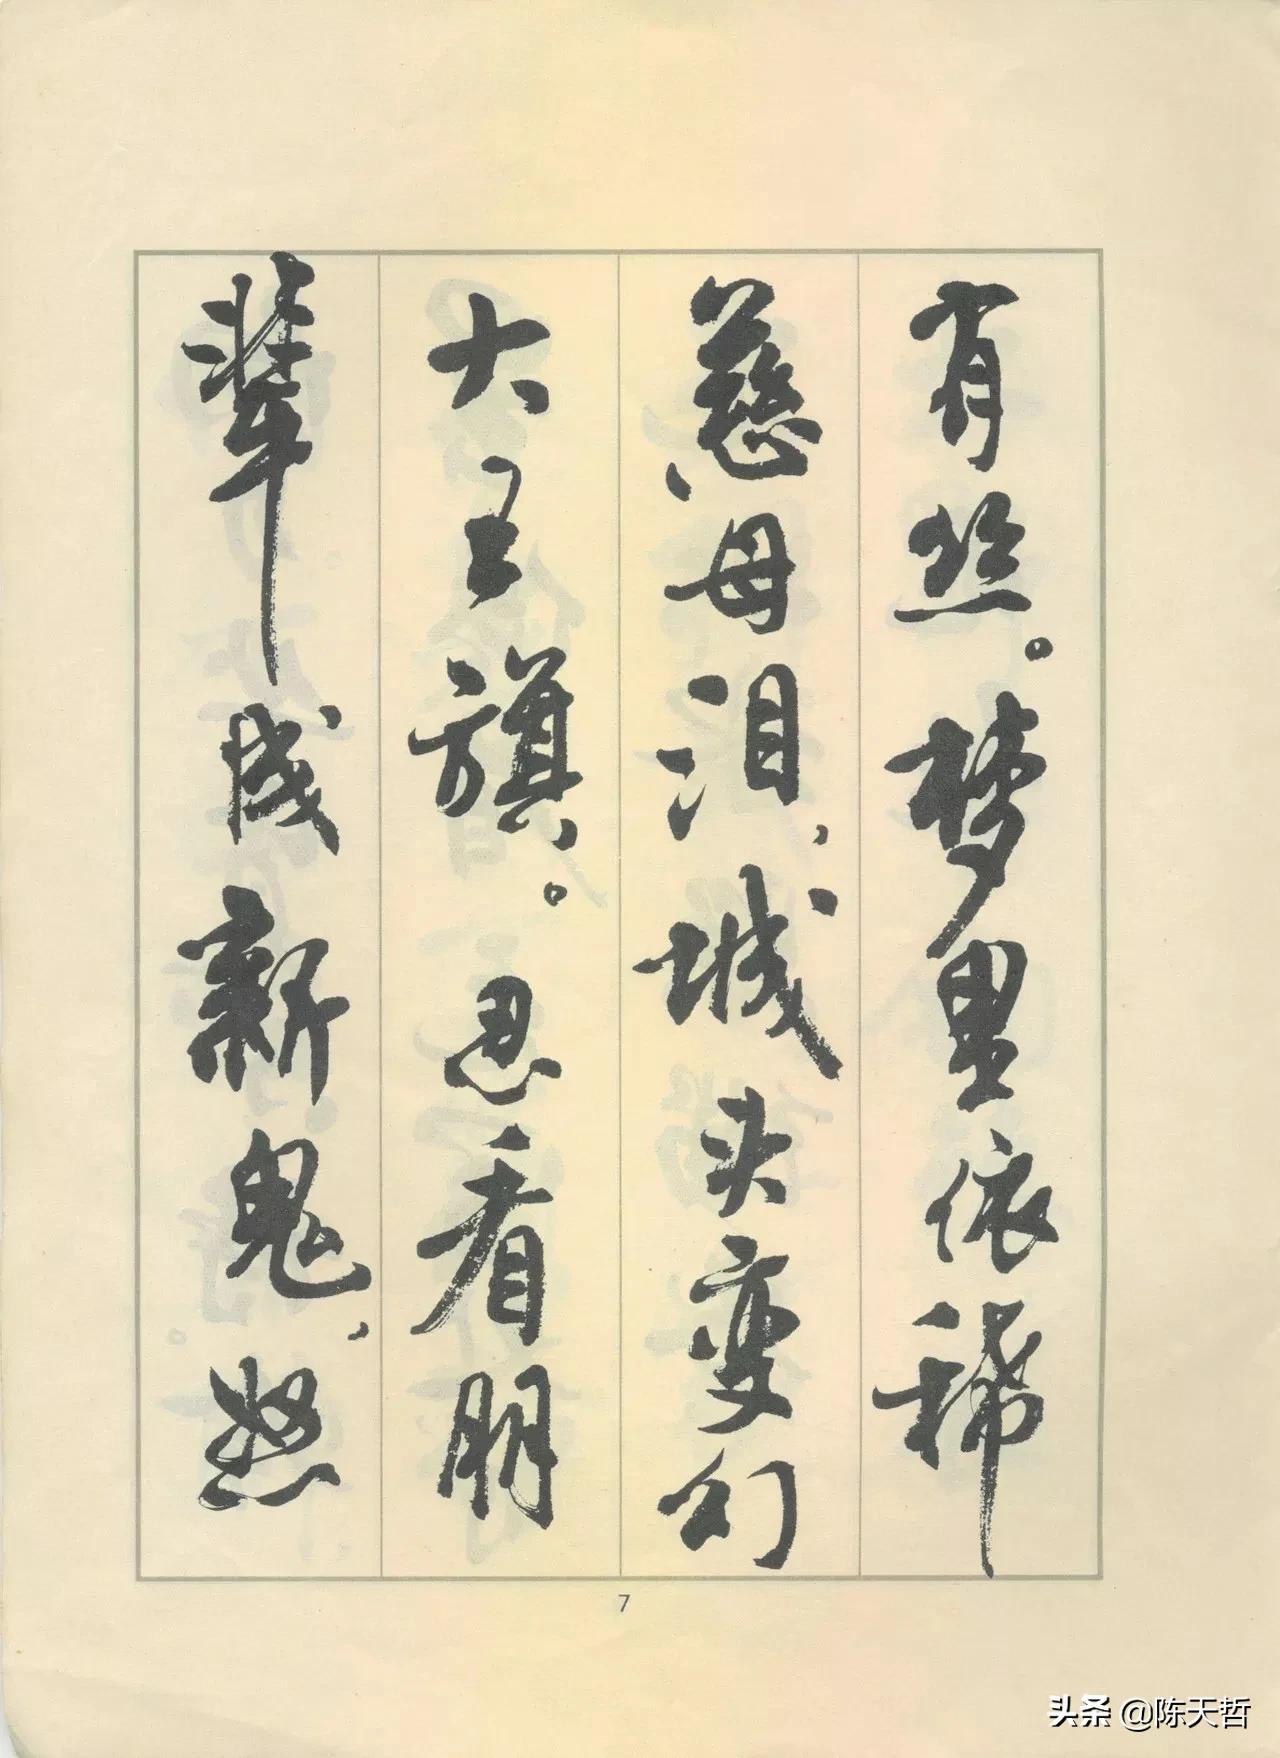 有丝。梦里依稀
慈母泪，城头变幻
大王旗。忍看朋
辈成新鬼，怒
7
头条 @陈天哲